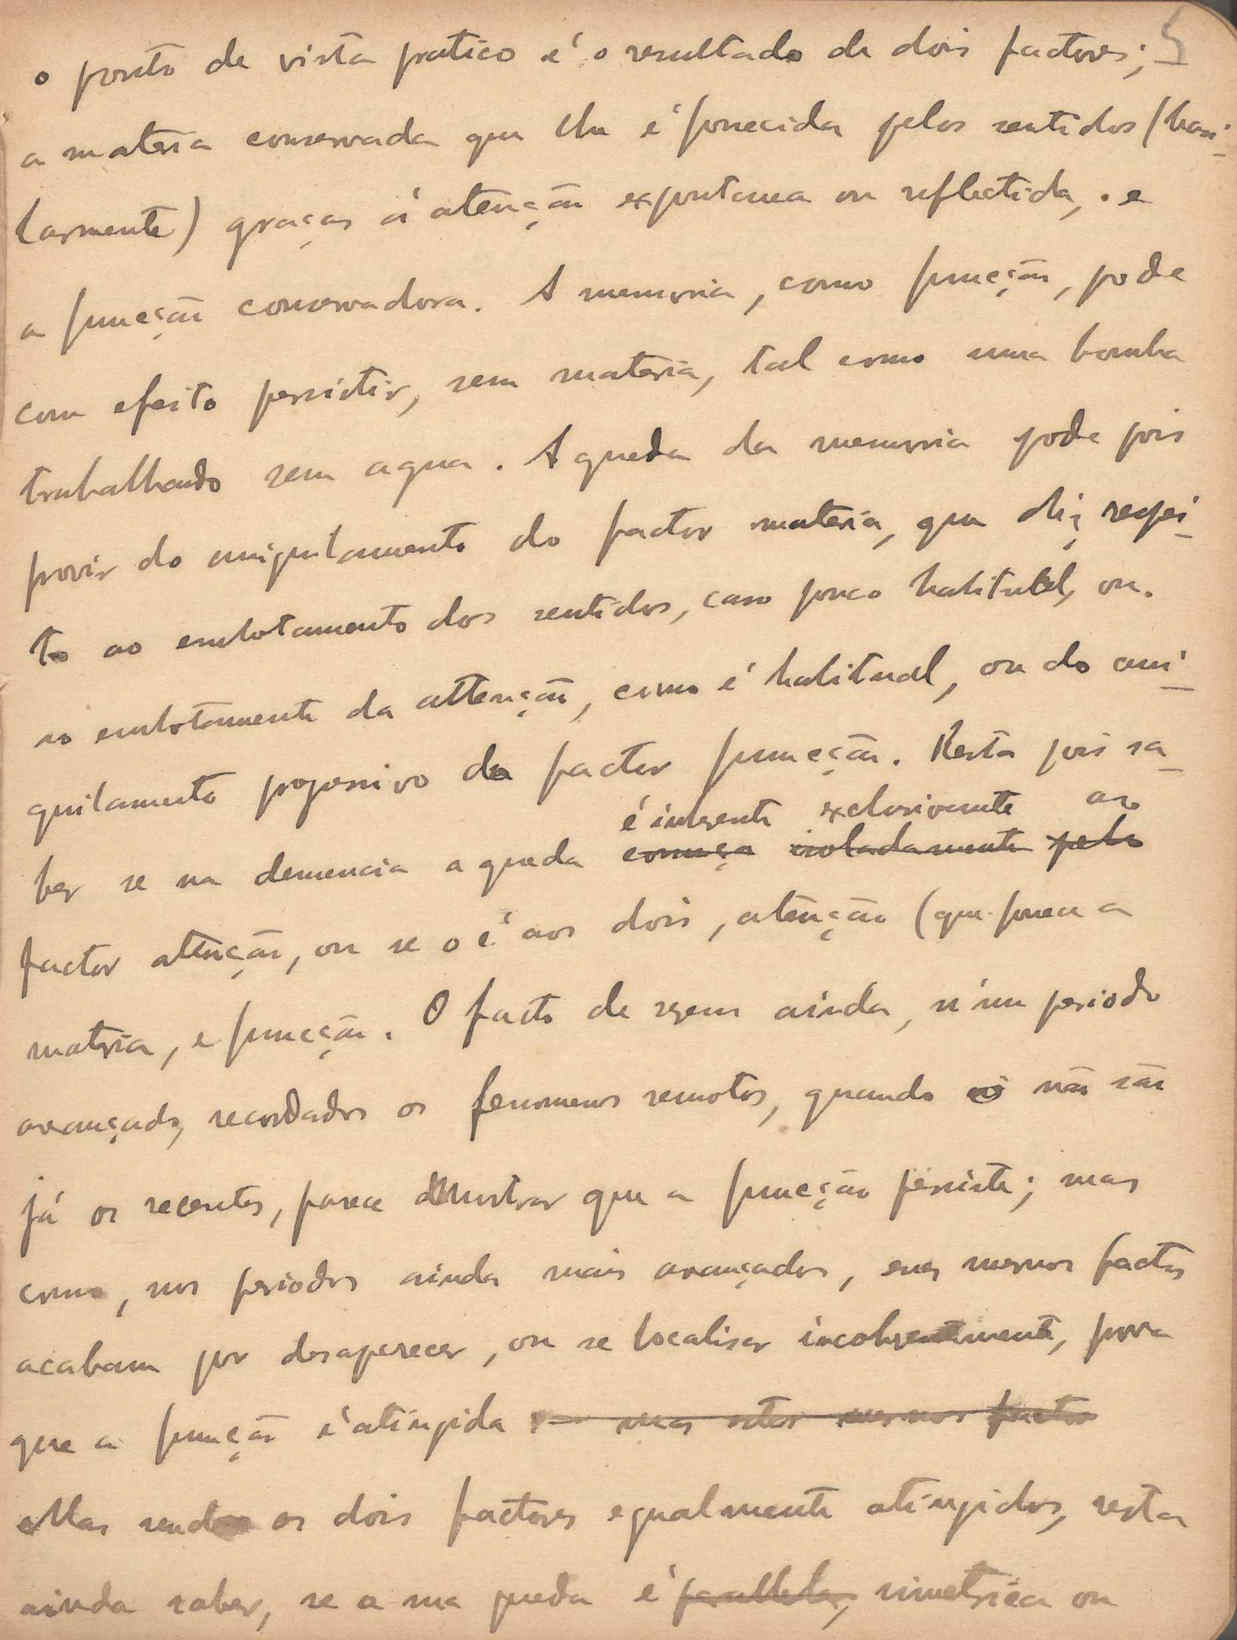 5
o ponto de vista pratico é o resultado de dois factores;
a materia conservada que lhe é fornecida pelos sentidos (basi-
larmente) graças á atenção expontanea ou reflectida, e
a funcção conservadora. A memoria, como funcção, pode
com efeito persistir, sem materia, tal como uma bomba
trabalhando sem agua. A queda da memoria pode pois
provir do aniquilamento do factor materia, que diz respei-
to ao embotamento dos sentidos, caso pouco habitual, ou
no embotamento da attenção, como é habitual, ou do ani-
quilamento progressivo do factor funcção. Resta pois sa-
é inherente exclusivamente ao
ber se na demencia a queda começa isoladamente pelo
factor atenção, ou se o é aos dois, atenção (que fornece a
materia, e funcção. O facto de serem ainda, n'um periodo
avançado, recordados os fenomenos remotos, quando não são
já os recentes, parece demostrar que a funcção persiste; mas
como, nos periodos ainda mais avançados, esses mesmos factos
acabam por desaparecer, ou se localisar incoherentemente, prova
que a funcção é atingida mas estes mesmos factos
Mas sendo os dois factores egualmente atingidos, resta
ainda saber, se a sua queda é parallela, simetrica ou